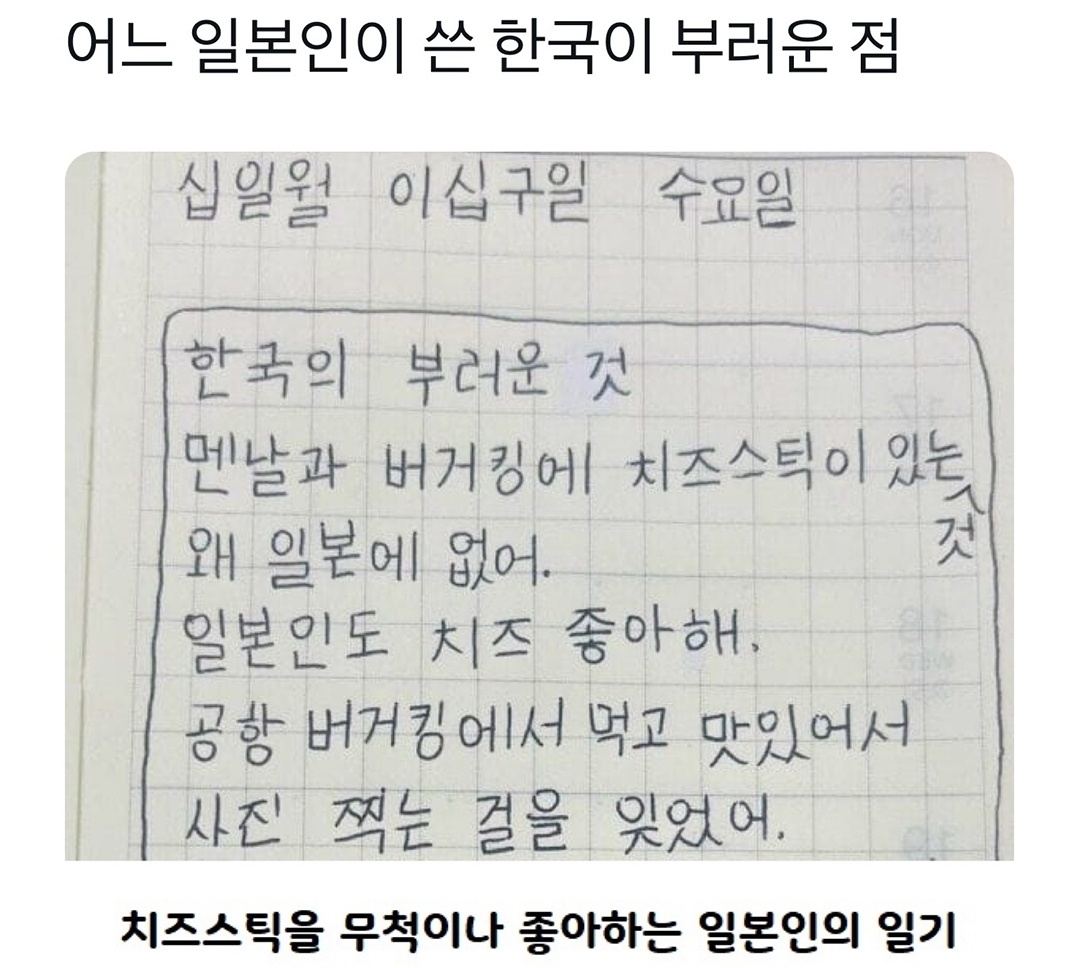 어느 일본인이 쓴 한국이 부러운 점
십일월 이십구일 수요일
한국의 부러운 것
멘날과 버거킹에 치즈스틱이 있는
것
왜 일본에 없어.
일본인도 치즈 좋아해.
공항 버거킹에서 먹고 맛있어서
사진 찍는 걸을 잊었어.
치즈스틱을 무척이나 좋아하는 일본인의 일기